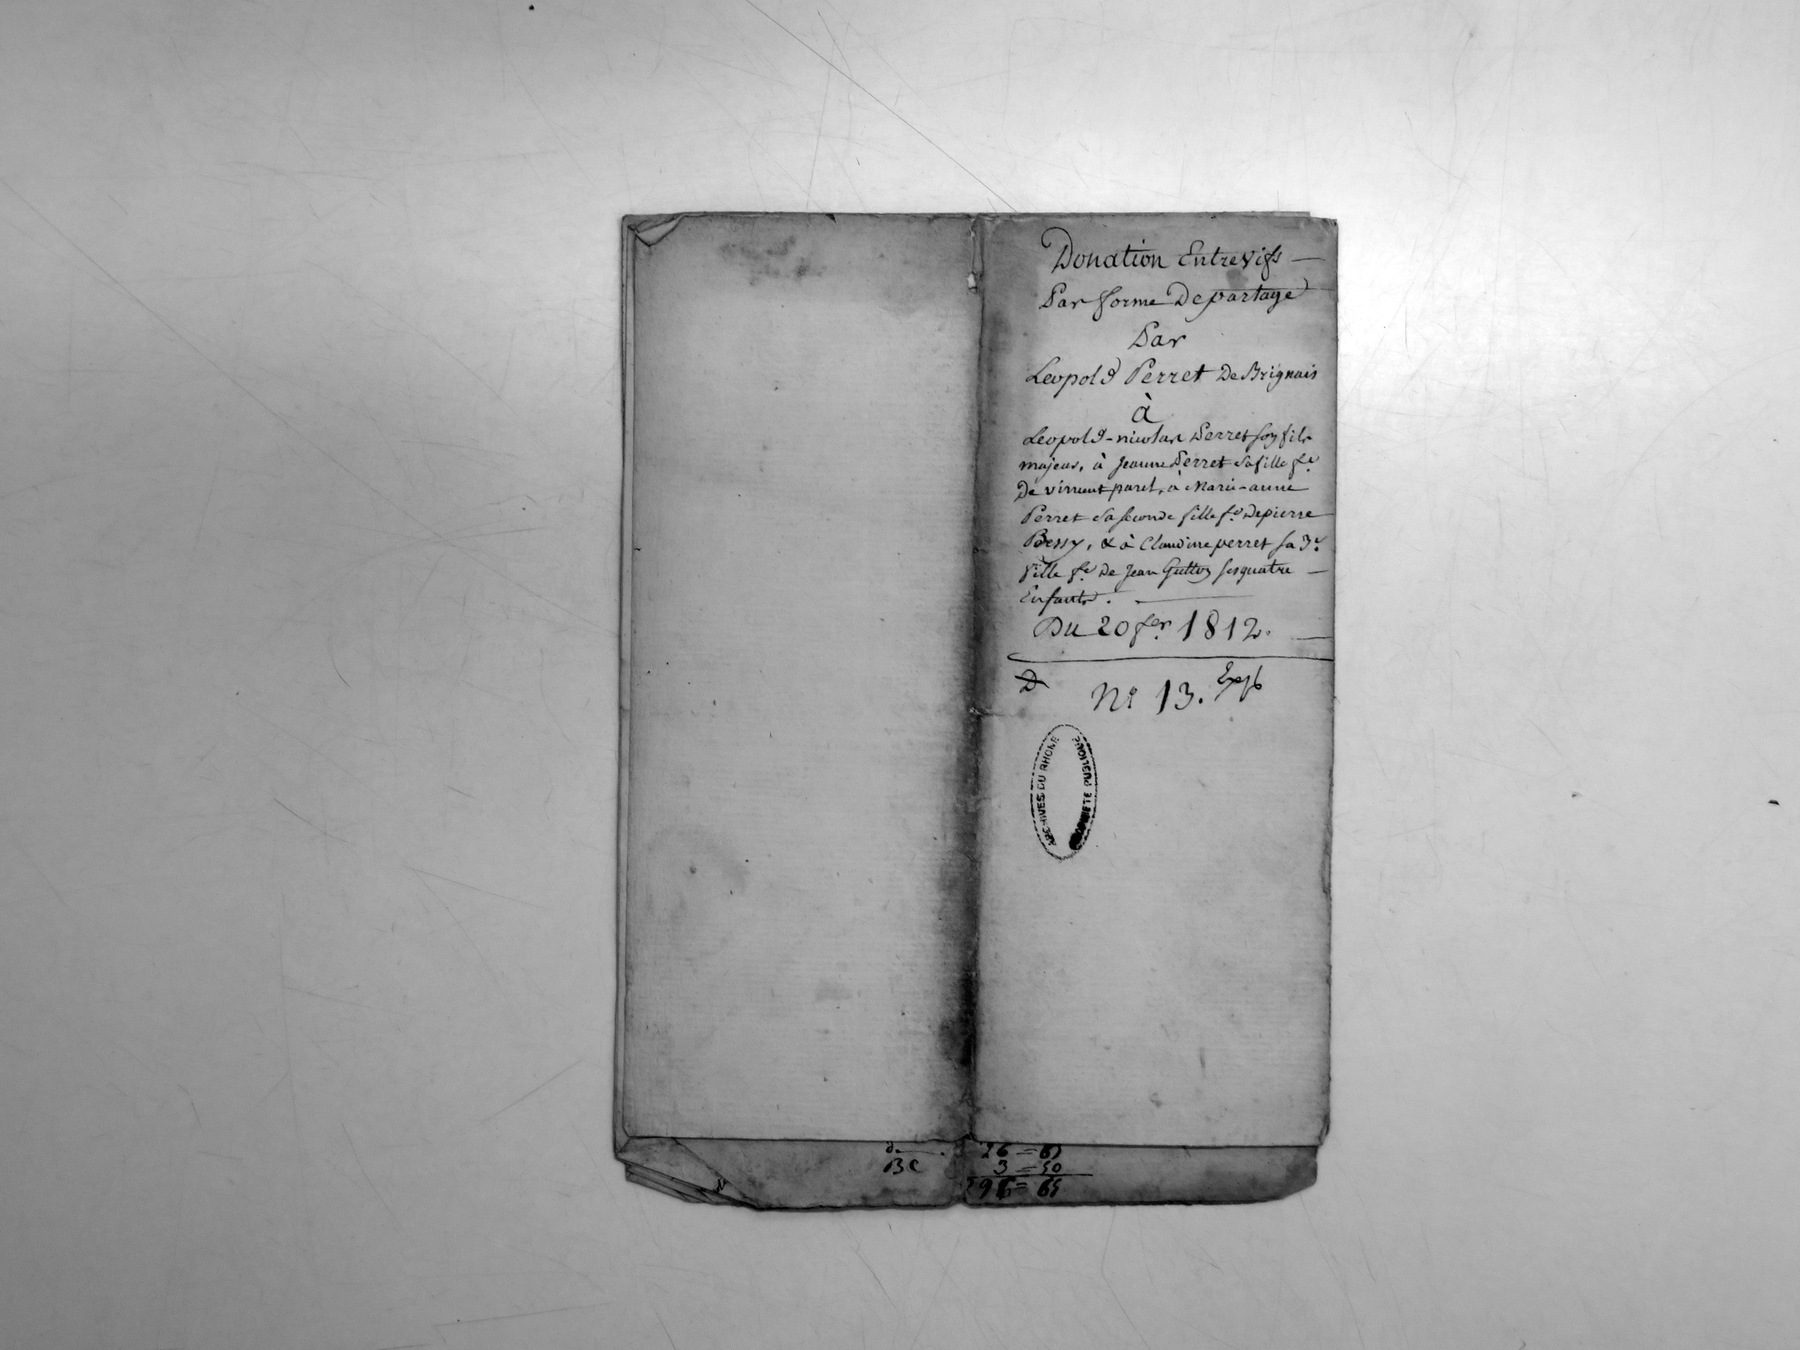 Donation Entrevifs —
Par forme De partage
Par
Leopold Perret De Brignais
à
Leopold-nicolas Perret son fils
majeur, à Jeanne Perret sa fille fe.
De vincent paret, à Marie-anne
Perret sa seconde fille fe. De pierre
Bessy, & à Claudine perret sa 3e.
fille fe. De Jean Gutton ses quatre —
Enfants.
Du 20 fer. 1812.
D
No 13. Expé
ARCHIVES DU RHONE
PROPRIETE PUBLIQUE
26 =
3 = 50